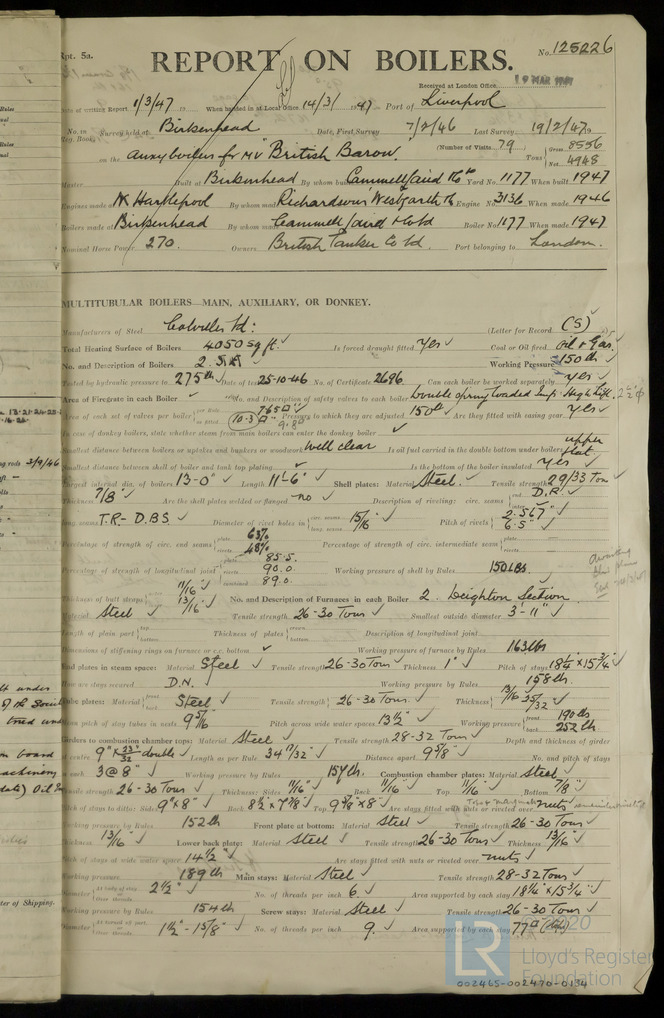 Rpt. 5a.
REPORT ON BOILERS.
No. 125226
Received at London Office
19 MAR 1947
Date of writing Report 1/3/47 19 When handed in at Local Office 14/3/ 1947 Port of Liverpool
No. in Reg. Book. Survey held at Birkenhead Date, First Survey 7/2/46 Last Survey 19/2/47 19
on the Auxy boilers for MV "British Baron. (Number of Visits 79) Tons Gross 8556 Net 4948
Master Built at Birkenhead By whom built Cammell Laird & Co Ld Yard No. 1177 When built 1947
Engines made at W. Hartlepool By whom made Richardsons, Westgarth Engine No. 3136 When made 1946
Boilers made at Birkenhead By whom made Cammell Laird & Co Ld Boiler No. 1177 When made 1947
Nominal Horse Power 270. Owners British Tanker Co Ld Port belonging to London.
MULTITUBULAR BOILERS—MAIN, AUXILIARY, OR DONKEY.
Manufacturers of Steel Colvilles Ld: (Letter for Record (S) )
Total Heating Surface of Boilers 4050 sq ft. Is forced draught fitted Yes Coal or Oil fired oil & Gas.
No. and Description of Boilers 2. Working Pressure 150 lb
Tested by hydraulic pressure to 275 lb Date of test 25-10-46 No. of Certificate 2696 Can each boiler be worked separately yes
Area of Firegrate in each Boiler No. and Description of safety valves to each boiler Double spring loaded Imp. High Lift. 2½" φ
Area of each set of valves per boiler per Rule 7.65 as fitted 9.8 10.3 Pressure to which they are adjusted 150 lb Are they fitted with easing gear Yes
In case of donkey boilers, state whether steam from main boilers can enter the donkey boiler
Smallest distance between boilers or uptakes and bunkers or woodwork well clear Is oil fuel carried in the double bottom under boilers upper flat
Smallest distance between shell of boiler and tank top plating Is the bottom of the boiler insulated yes
Largest internal dia. of boilers 13'-0" Length 11'-6" Shell plates: Material Steel. Tensile strength 29/33 Tons
Thickness 7/8" Are the shell plates welded or flanged no Description of riveting: circ. seams end D.R. inter.
long seams T.R- D.B.S Diameter of rivet holes in circ. seams long. seams 15/16 Pitch of rivets 2.567" 6.5"
Percentage of strength of circ. end seams plate 63% rivets 48% Percentage of strength of circ. intermediate seam plate rivets
Percentage of strength of longitudinal joint plate 85.5. rivets 90.0 combined 89.0 Working pressure of shell by Rules 150 lbs
Thickness of butt straps 11/16 13/16 No. and Description of Furnaces in each Boiler 2. Deighton Section
Material Steel Tensile strength 26-30 Tons Smallest outside diameter 3'-11"
Length of plain part top bottom Thickness of plates crown bottom Description of longitudinal joint
Dimensions of stiffening rings on furnace or c.c. bottom Working pressure of furnace by Rules 163 lbs
End plates in steam space: Material Steel Tensile strength 26-30 Tons Thickness 1" Pitch of stays 18¼" × 15¾"
How are stays secured D.N. Working pressure by Rules 158 lb
Tube plates: Material front back Steel Tensile strength 26-30 Tons. Thickness 13/16 25/32
Mean pitch of stay tubes in nests 9 5/16 Pitch across wide water spaces 13½" Working pressure front 190 lb back 252 lb
Girders to combustion chamber tops: Material Steel Tensile strength 28-32 Tons Depth and thickness of girder
at centre 9" × 23/32" double Length as per Rule 34 17/32" Distance apart 9 5/8" No. and pitch of stays
in each 3 @ 8" Working pressure by Rules 157 lb. Combustion chamber plates: Material Steel
Tensile strength 26-30 Tons Thickness: Sides 11/16" Back 11/16 Top 11/16 Bottom 7/8"
Pitch of stays to ditto: Sides 9" × 8" Back 8½" × 7 7/8 Top 9 5/8 × 8" Are stays fitted with nuts or riveted over nuts
Working pressure by Rules 152 lb Front plate at bottom: Material Steel Tensile strength 26-30 Tons
Thickness 13/16 Lower back plate: Material Steel Tensile strength 26-30 Tons Thickness 13/16
Pitch of stays at wide water space 14½" Are stays fitted with nuts or riveted over nuts
Working Pressure 189 lb Main stays: Material Steel Tensile strength 28-32 Tons
Diameter At body of stay, or Over threads 2½" No. of threads per inch 6. Area supported by each stay 18¼" × 15¾"
Working pressure by Rules 154 lb Screw stays: Material Steel Tensile strength 26-30 Tons
Diameter At turned off part, or Over threads 1½" - 1 5/8" No. of threads per inch 9. Area supported by each stay 77
© 2020
LR
Lloyd's Register
Foundation
002465-002470-0134